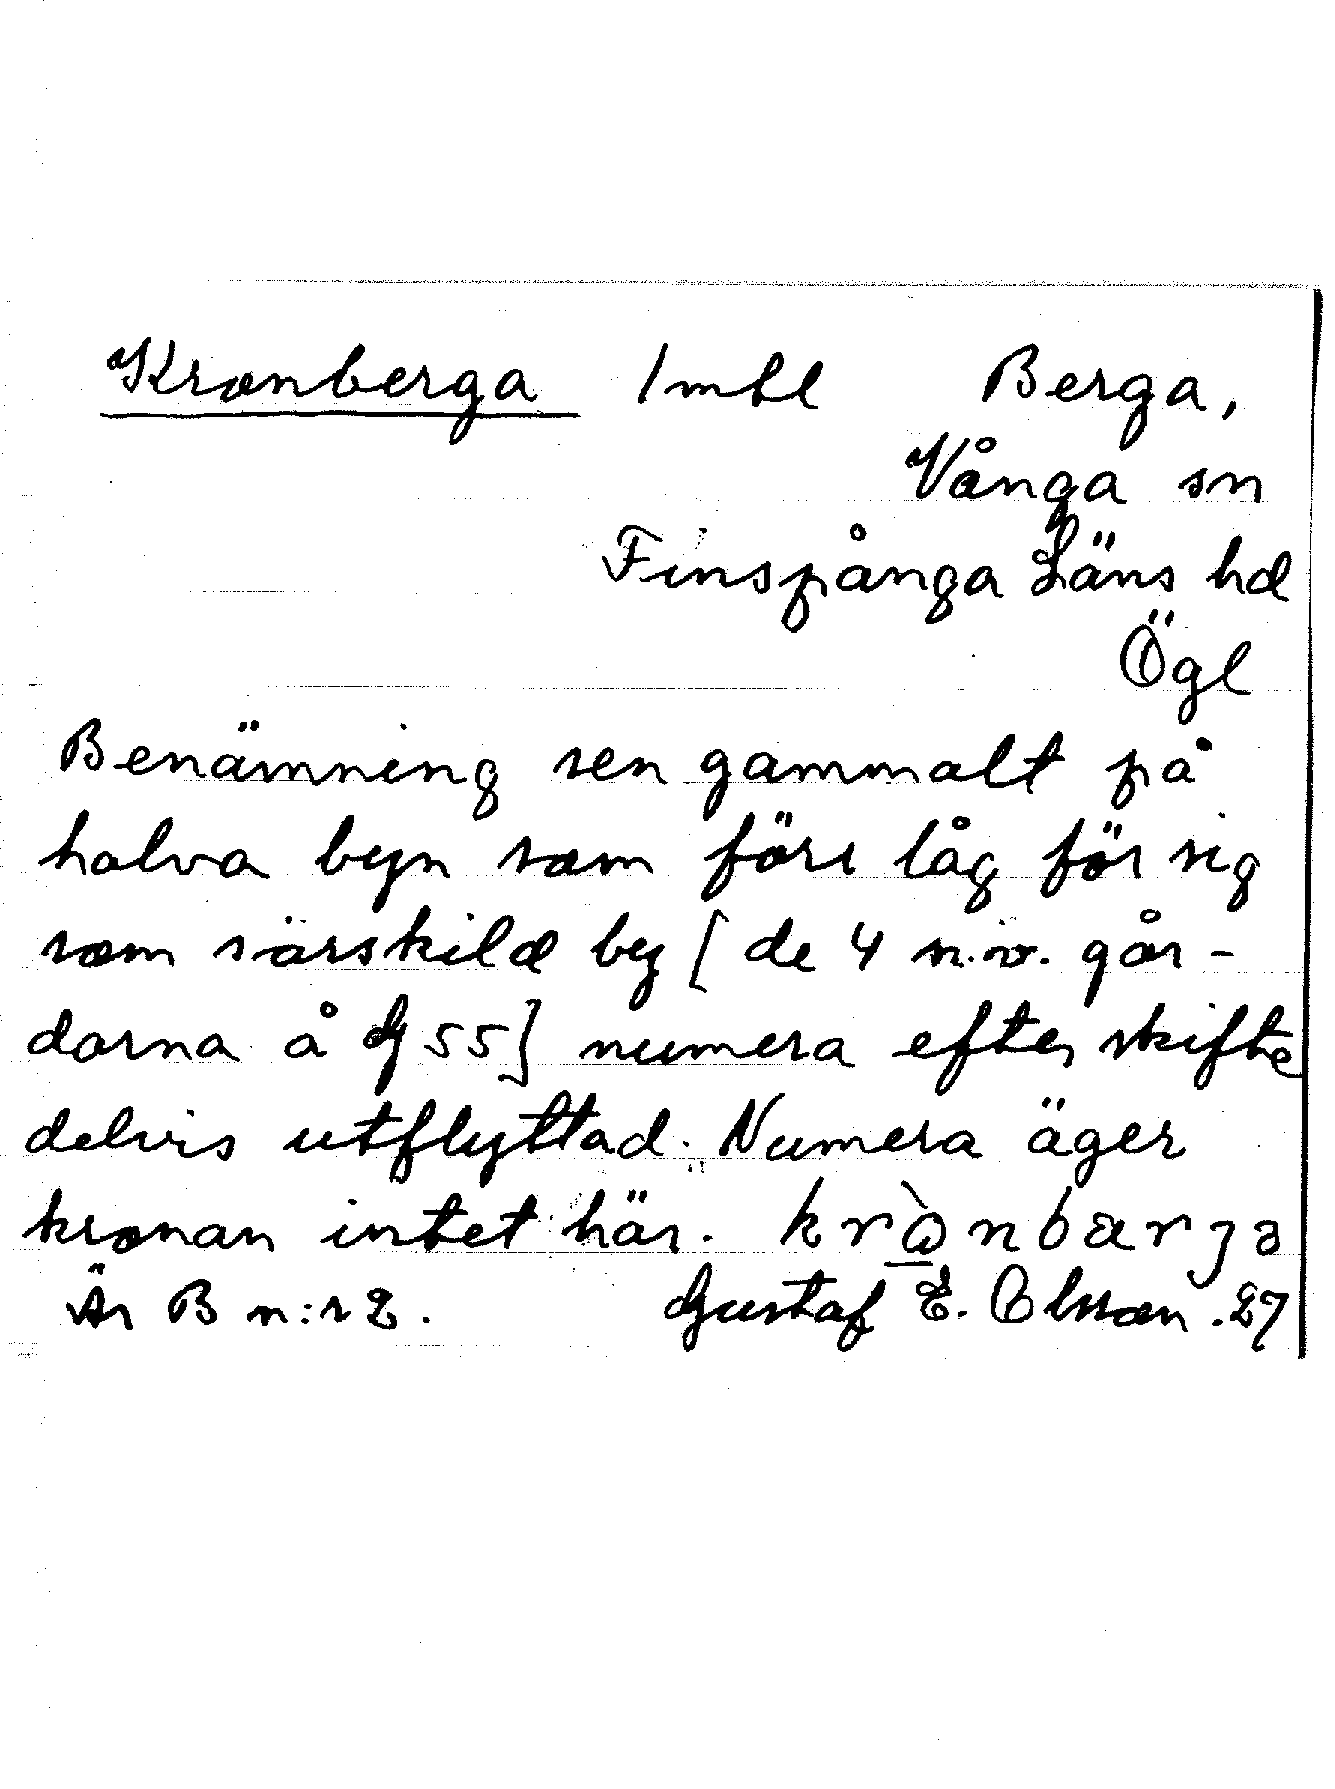 Kronberga 1 mtl Berga,
Vånga sn
Finspånga Läns hd
Ögl
Benämning sen gammalt på
halva byn som förr låg för sig
som särskild by [de 4 n.v. går-
darna å G 55] numera efter skifte
delvis utflyttad. Numera äger
kronan intet här.
Är B n:r 2. Gustaf E. Olsson. 27